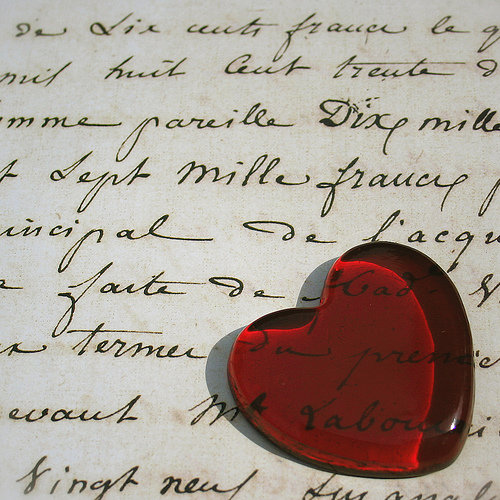 de Six cents francs le
mil huit Cent trente
omme pareille Dix mille
t Sept mille francs
rincipal de l'acqu
faite de Mad.
termes du premie
evant Me Labou
Vingt neuf